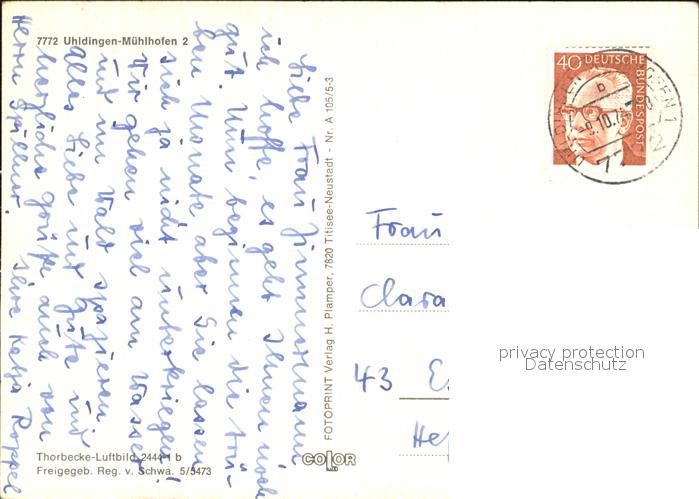 7772 Uhldingen-Mühlhofen 2
Liebe Frau Zimmermann
ich hoffe, es geht Ihnen noch
gut. Nun beginnen die trü-
ben Monate aber Sie lassen
sich ja nicht unterkriegen!
Wir gehen viel am Wasser
und im Wald spazieren
Alles Liebe und Gute und
herzliche Grüße auch von
Herrn Spillner. Ihre Katja Roppel
Thorbecke-Luftbild 2444 1 b
Freigegeb. Reg. v. Schwa. 5/5473
FOTOPRINT Verlag H. Plamper, 7820 Titisee-Neustadt - Nr. A 105/5-3
COLOR
40 DEUTSCHE
BUNDESPOST
Frau
Clara
43 E
He
privacy protection
Datenschutz